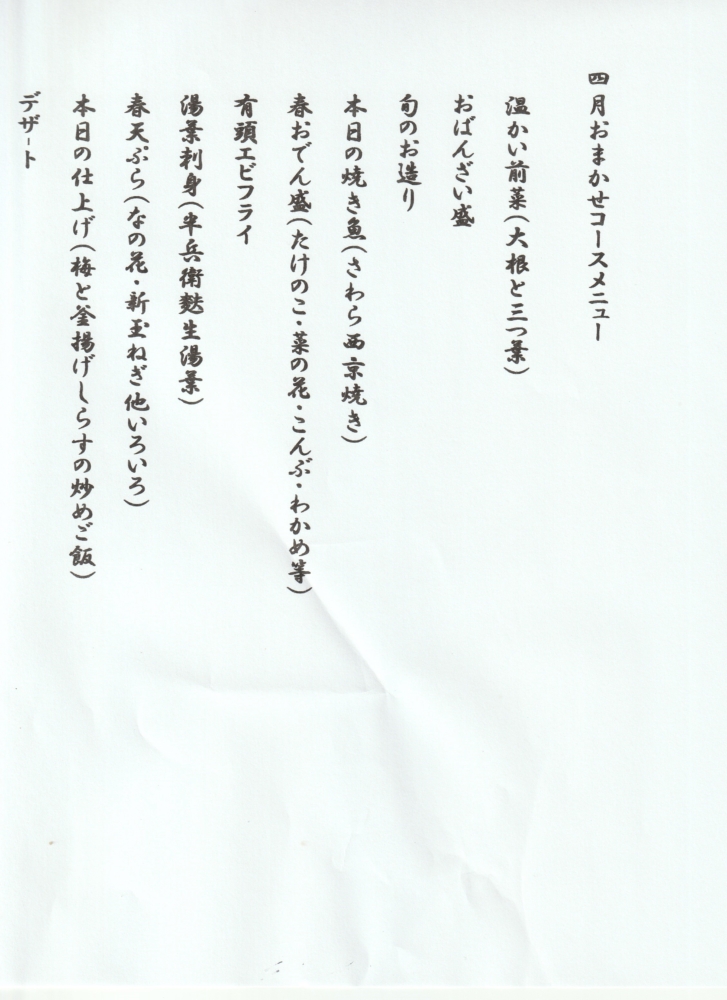 四月おまかせコースメニュー
温かい前菜(大根と三つ葉)
おばんざい盛
旬のお造り
本日の焼き魚(さわら西京焼き)
春おでん盛(たけのこ・菜の花・こんぶ・わかめ等)
有頭エビフライ
湯葉刺身(半兵衛麩生湯葉)
春天ぷら(なの花・新玉ねぎ他いろいろ)
本日の仕上げ(梅と釜揚げしらすの炒めご飯)
デザート